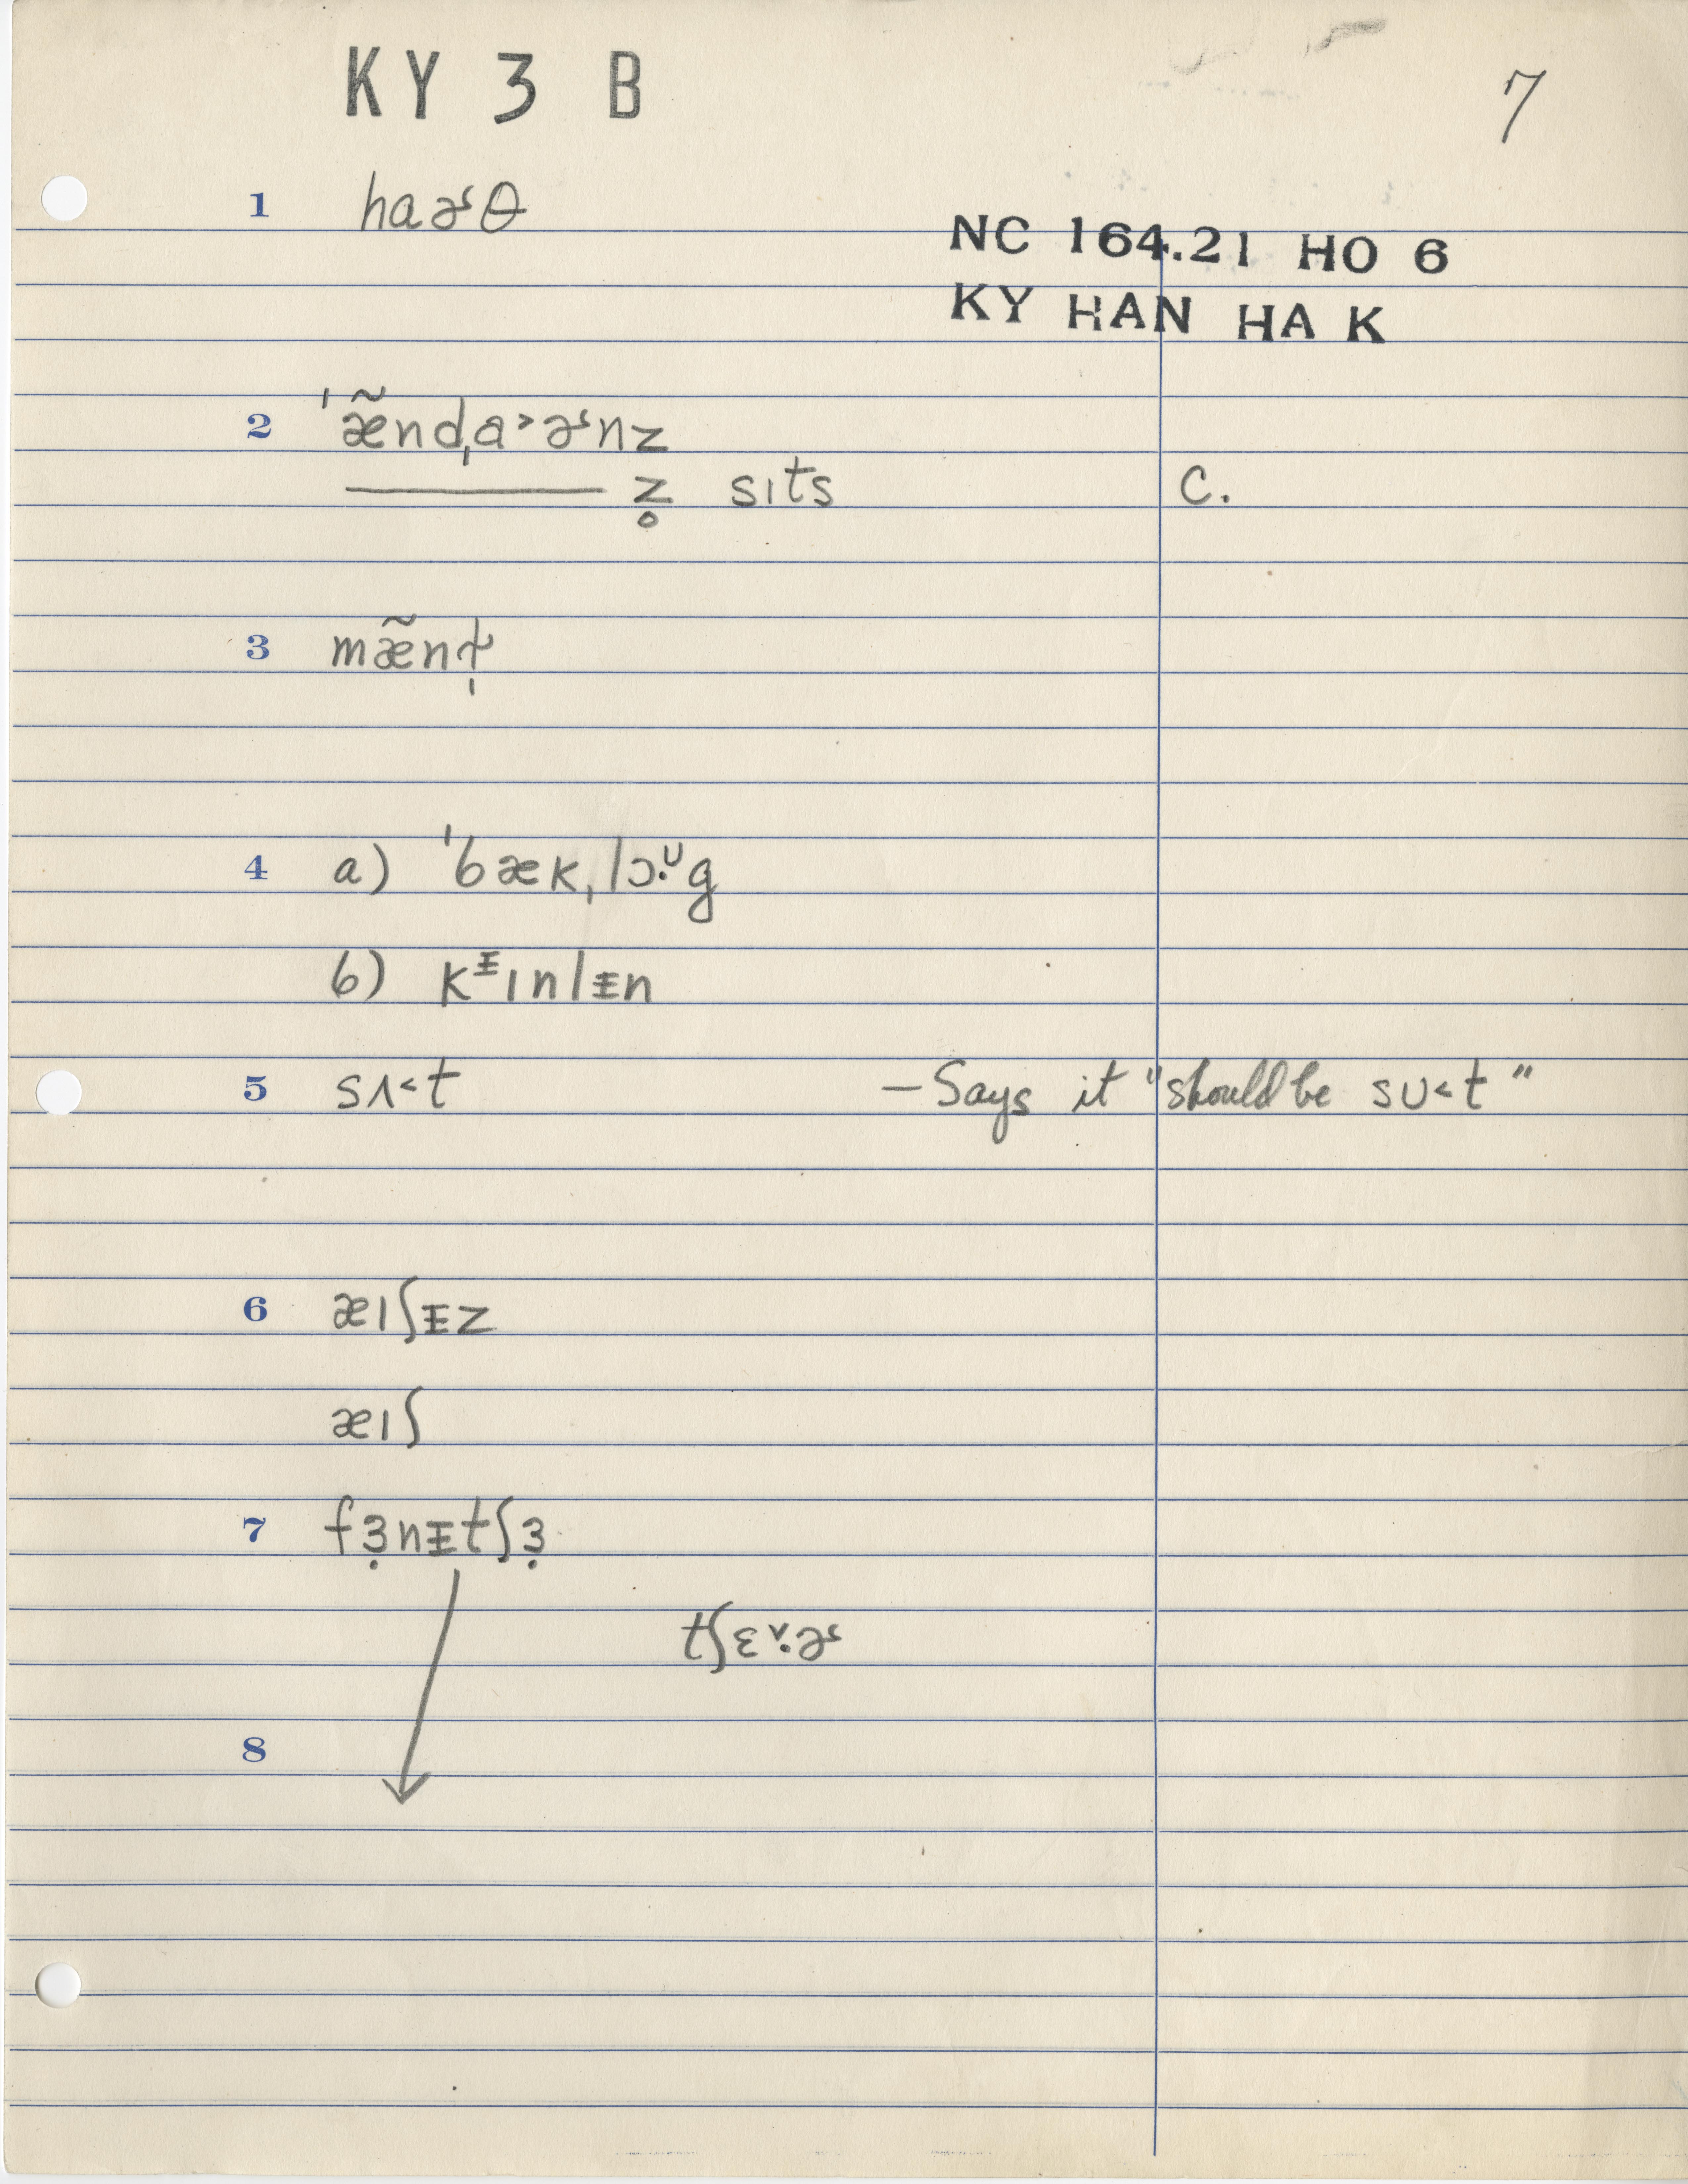 KY 3 B
7
1 haɚθ
NC 164.21 HO 6
KY HAN HA K
2 ˈæ̃ndˌa˃ɚnz
——— z̥ sɪts C.
3 mæ̃nɫ̩
4 a) ˈbækˌlɔ̣ᶷg
b) kᵻɪnlᵻn
5 sʌ˂t —Says it "should be sʊ˂t"
6 æɪʃᵻz
æɪʃ
7 fɜ̣nᵻtʃɜ̣
tʃɛ˅·ɚ
8